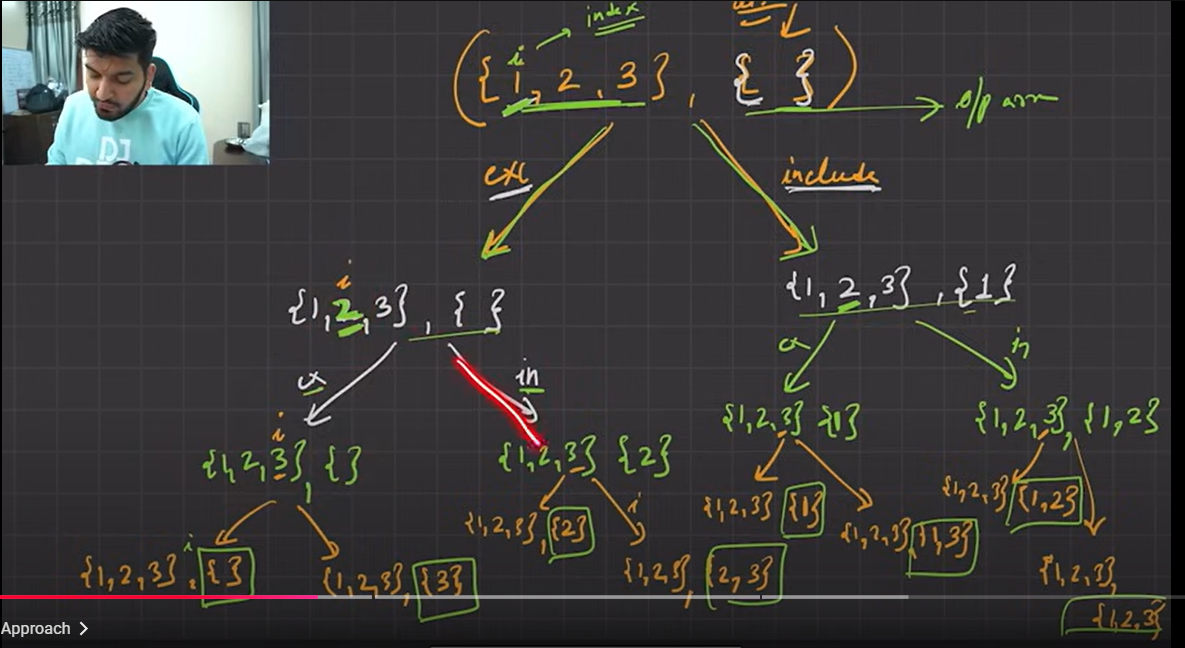 index
i
({1, 2, 3}, { })
o/p arr
exc
include
i
{1,2,3}, { }
{1,2,3}, {1}
ex
in
ex
in
i
{1,2,3}, {}
{1,2,3} {2}
{1,2,3} {1}
{1,2,3}, {1,2}
i
i
{1,2,3}, { }
{1,2,3}, {3}
{1,2,3}, {2}
{1,2,3}, {2,3}
{1,2,3} {1}
{1,2,3}, {1,3}
{1,2,3} {1,2}
{1,2,3},
{1,2,3}
DJ
Approach >